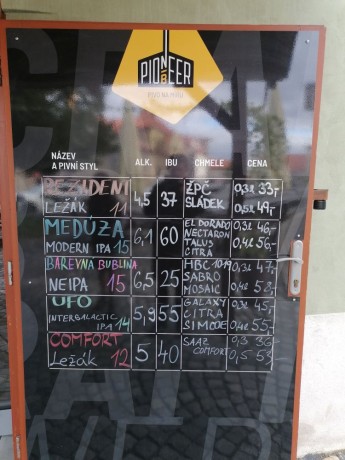 PIONEER
PIVO NA MÍRU
NÁZEV
A PIVNÍ STYL
ALK.
IBU
CHMELE
CENA
REZIDENT
LEŽÁK 11
4,5
37
ŽPČ
SLÁDEK
0,3l 33,-
0,5l 49,-
MEDUZA
MODERN IPA 15
6,1
60
EL DORADO
NECTARON
TALUS
CITRA
0,3l 46,-
0,4l 56,-
BAREVNA BUBLINA
NEIPA 15
6,5
25
HBC 1019
SABRO
MOSAIC
0,3l 47,-
0,4l 58,-
UFO
INTERGALACTIC
IPA 14
5,9
55
GALAXY
CITRA
SIMCOE
0,3l 45,-
0,4l 55,-
COMFORT
LEŽÁK 12
5
40
SAAZ
COMFORT
0,3 36,-
0,5 53,-